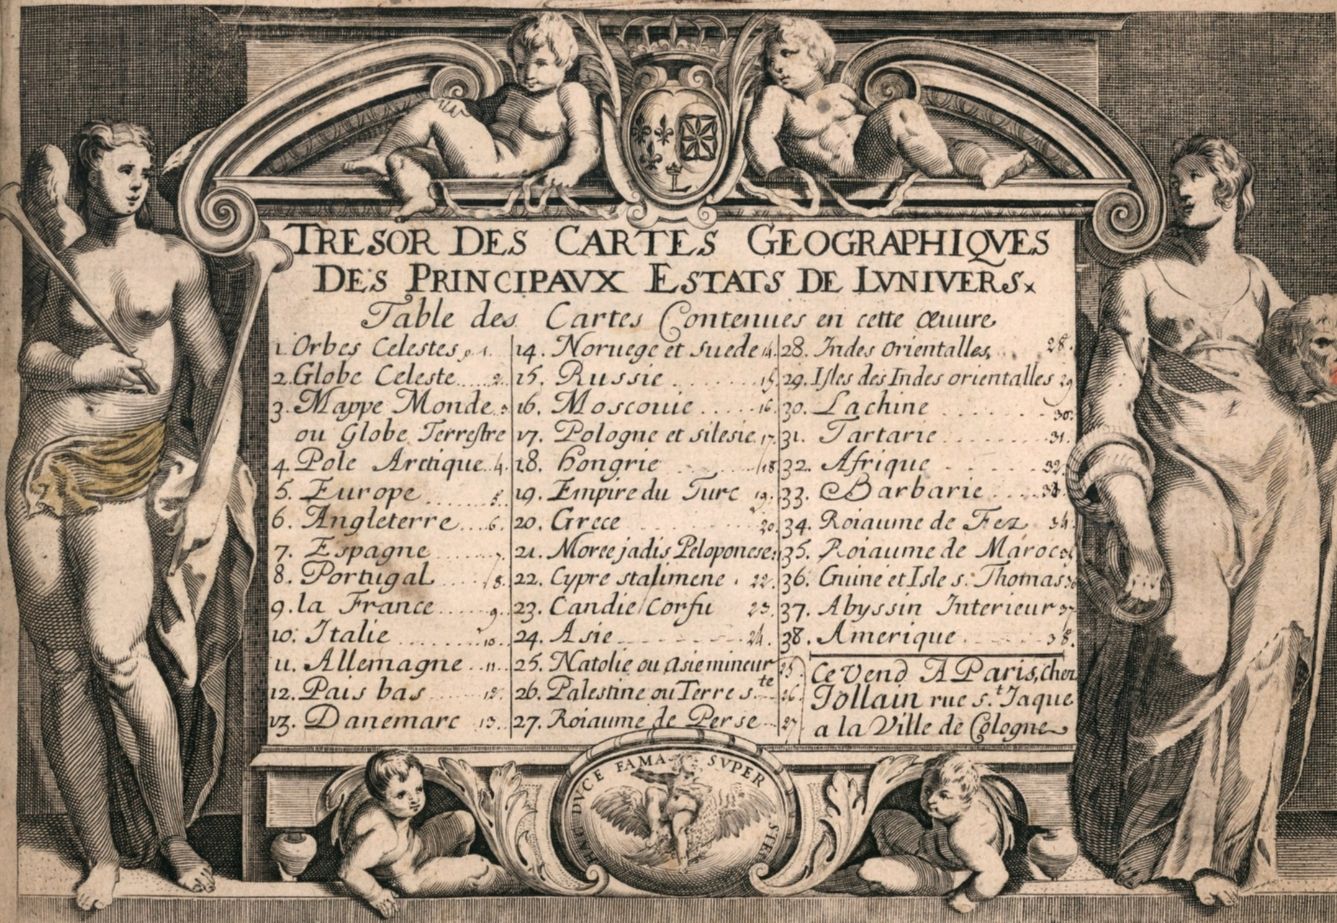 TRESOR DES CARTES GEOGRAPHIQVES
DES PRINCIPAVX ESTATS DE LVNIVERS.
Table des Cartes Contenues en cette œuure
1. Orbes Celestes. 1.
2. Globe Celeste.... 2.
3. Mappe Monde. 3
ou Globe Terrestre
4. Pole Arctique.. 4.
5. Europe ........ 5.
6. Angleterre.... 6.
7. Espagne ...... 7.
8. Portugal ..... 8.
9. la France ..... 9
10. Italie ........ 10.
11. Allemagne .. 11..
12. Pais bas ..... 12.
13. Danemarc .. 13..
14. Noruege et suede 14.
15. Russie ........ 15
16. Moscouie ..... 16.
17. Pologne et silesie 17.
18. hongrie ..... 18
19. Empire du Turc 19.
20. Grece ........ 20
21. Moree jadis Peloponese.
22. Cypre stalimene . 22.
23. Candie Corfu 23.
24. Asie ........ 24.
25. Natolie ou asie mineur 25
26. Palestine ou Terre s.te 26
27. Roiaume de Perse .. 27
28. Indes Orientalles, .. 28.
29. Isles des Indes orientalles 29
30. La chine ....... 30.
31. Tartarie ....... 31.
32. Afrique ....... 32.
33. Barbarie .... 33.
34. Roiaume de Fez . 34.
35. Roiaume de Maroc
36. Guine et Isle s. Thomas
37. Abyssin Interieur 37
38. Amerique ..... 38.
Ce Vend A Paris, chez
Iollain rue s.t Iaque
a la Ville de Cologne
HAC DVCE FAMA SVPER